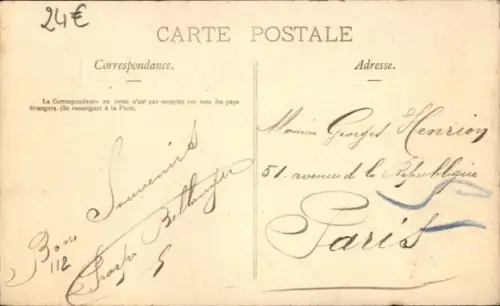 24€
CARTE POSTALE
Correspondance.
Adresse.
La Correspondance au recto n'est pas acceptée par tous les pays
étrangers. (Se renseigner à la Poste.
Souvenirs
Bons
112
Bellanger
Monsieur Georges Henrion
51. avenue de la République
Paris